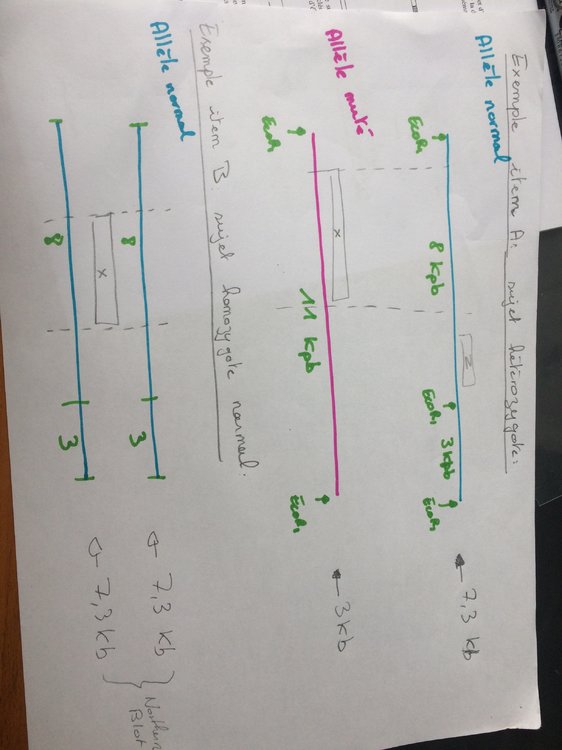 Exemple item A: sujet hétérozygote:
Allèle normal
EcoR1 8 Kpb EcoR1 3Kpb EcoR1
7,3 kb
Z
X
Allèle muté
EcoR1 11 Kpb EcoR1
3 kb
Exemple item B: sujet homozygote normal:
Allèle normal
8 3
7,3 Kb
X
8 3
7,3 kb
Northern
Blot